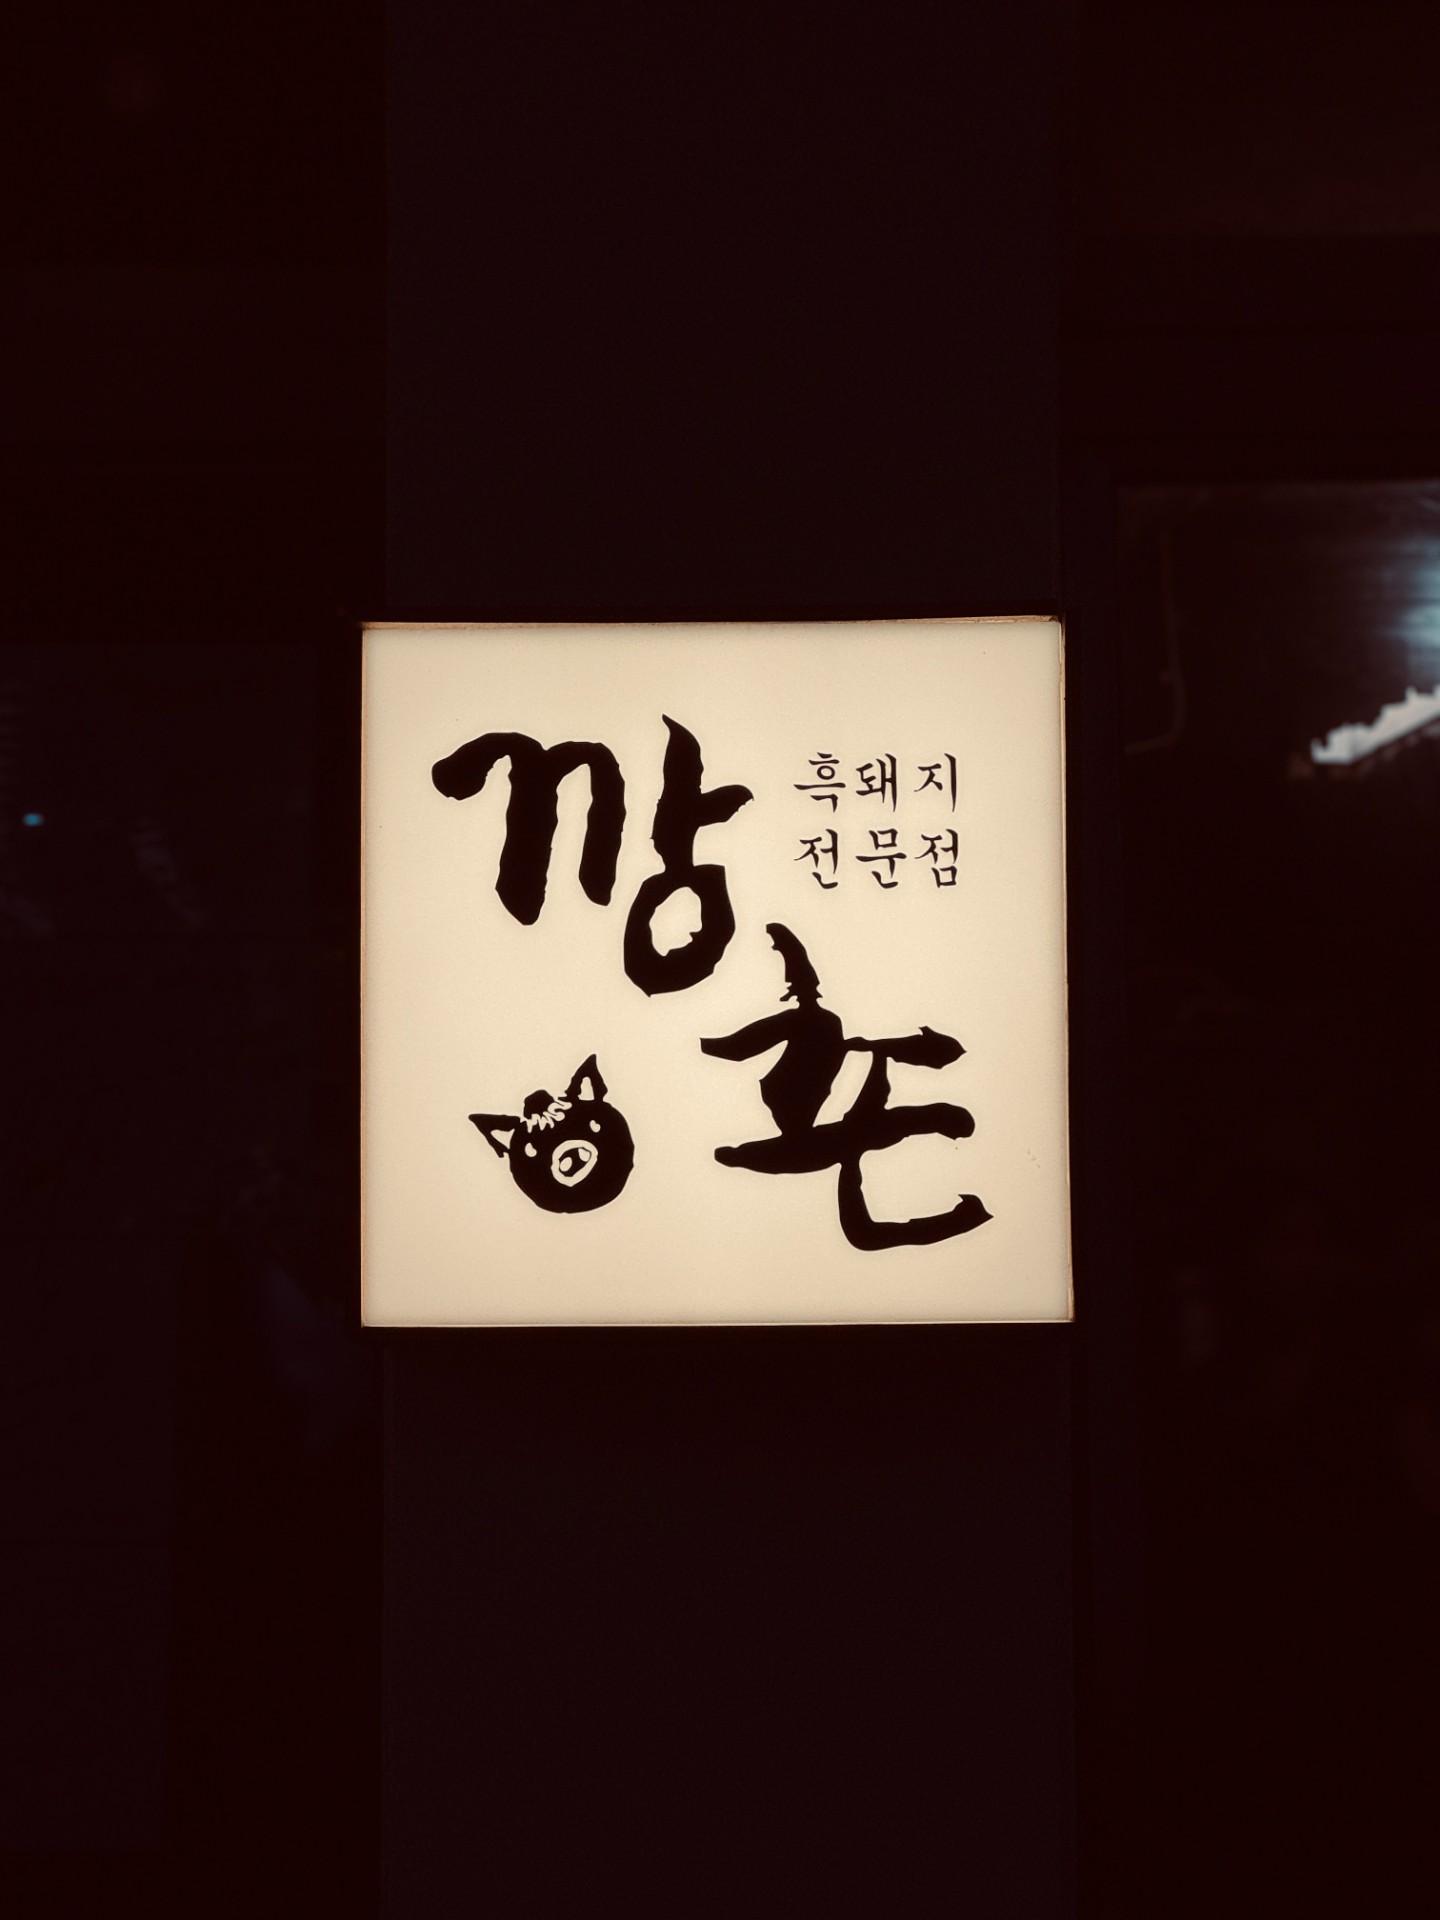 깡촌
흑돼지
전문점